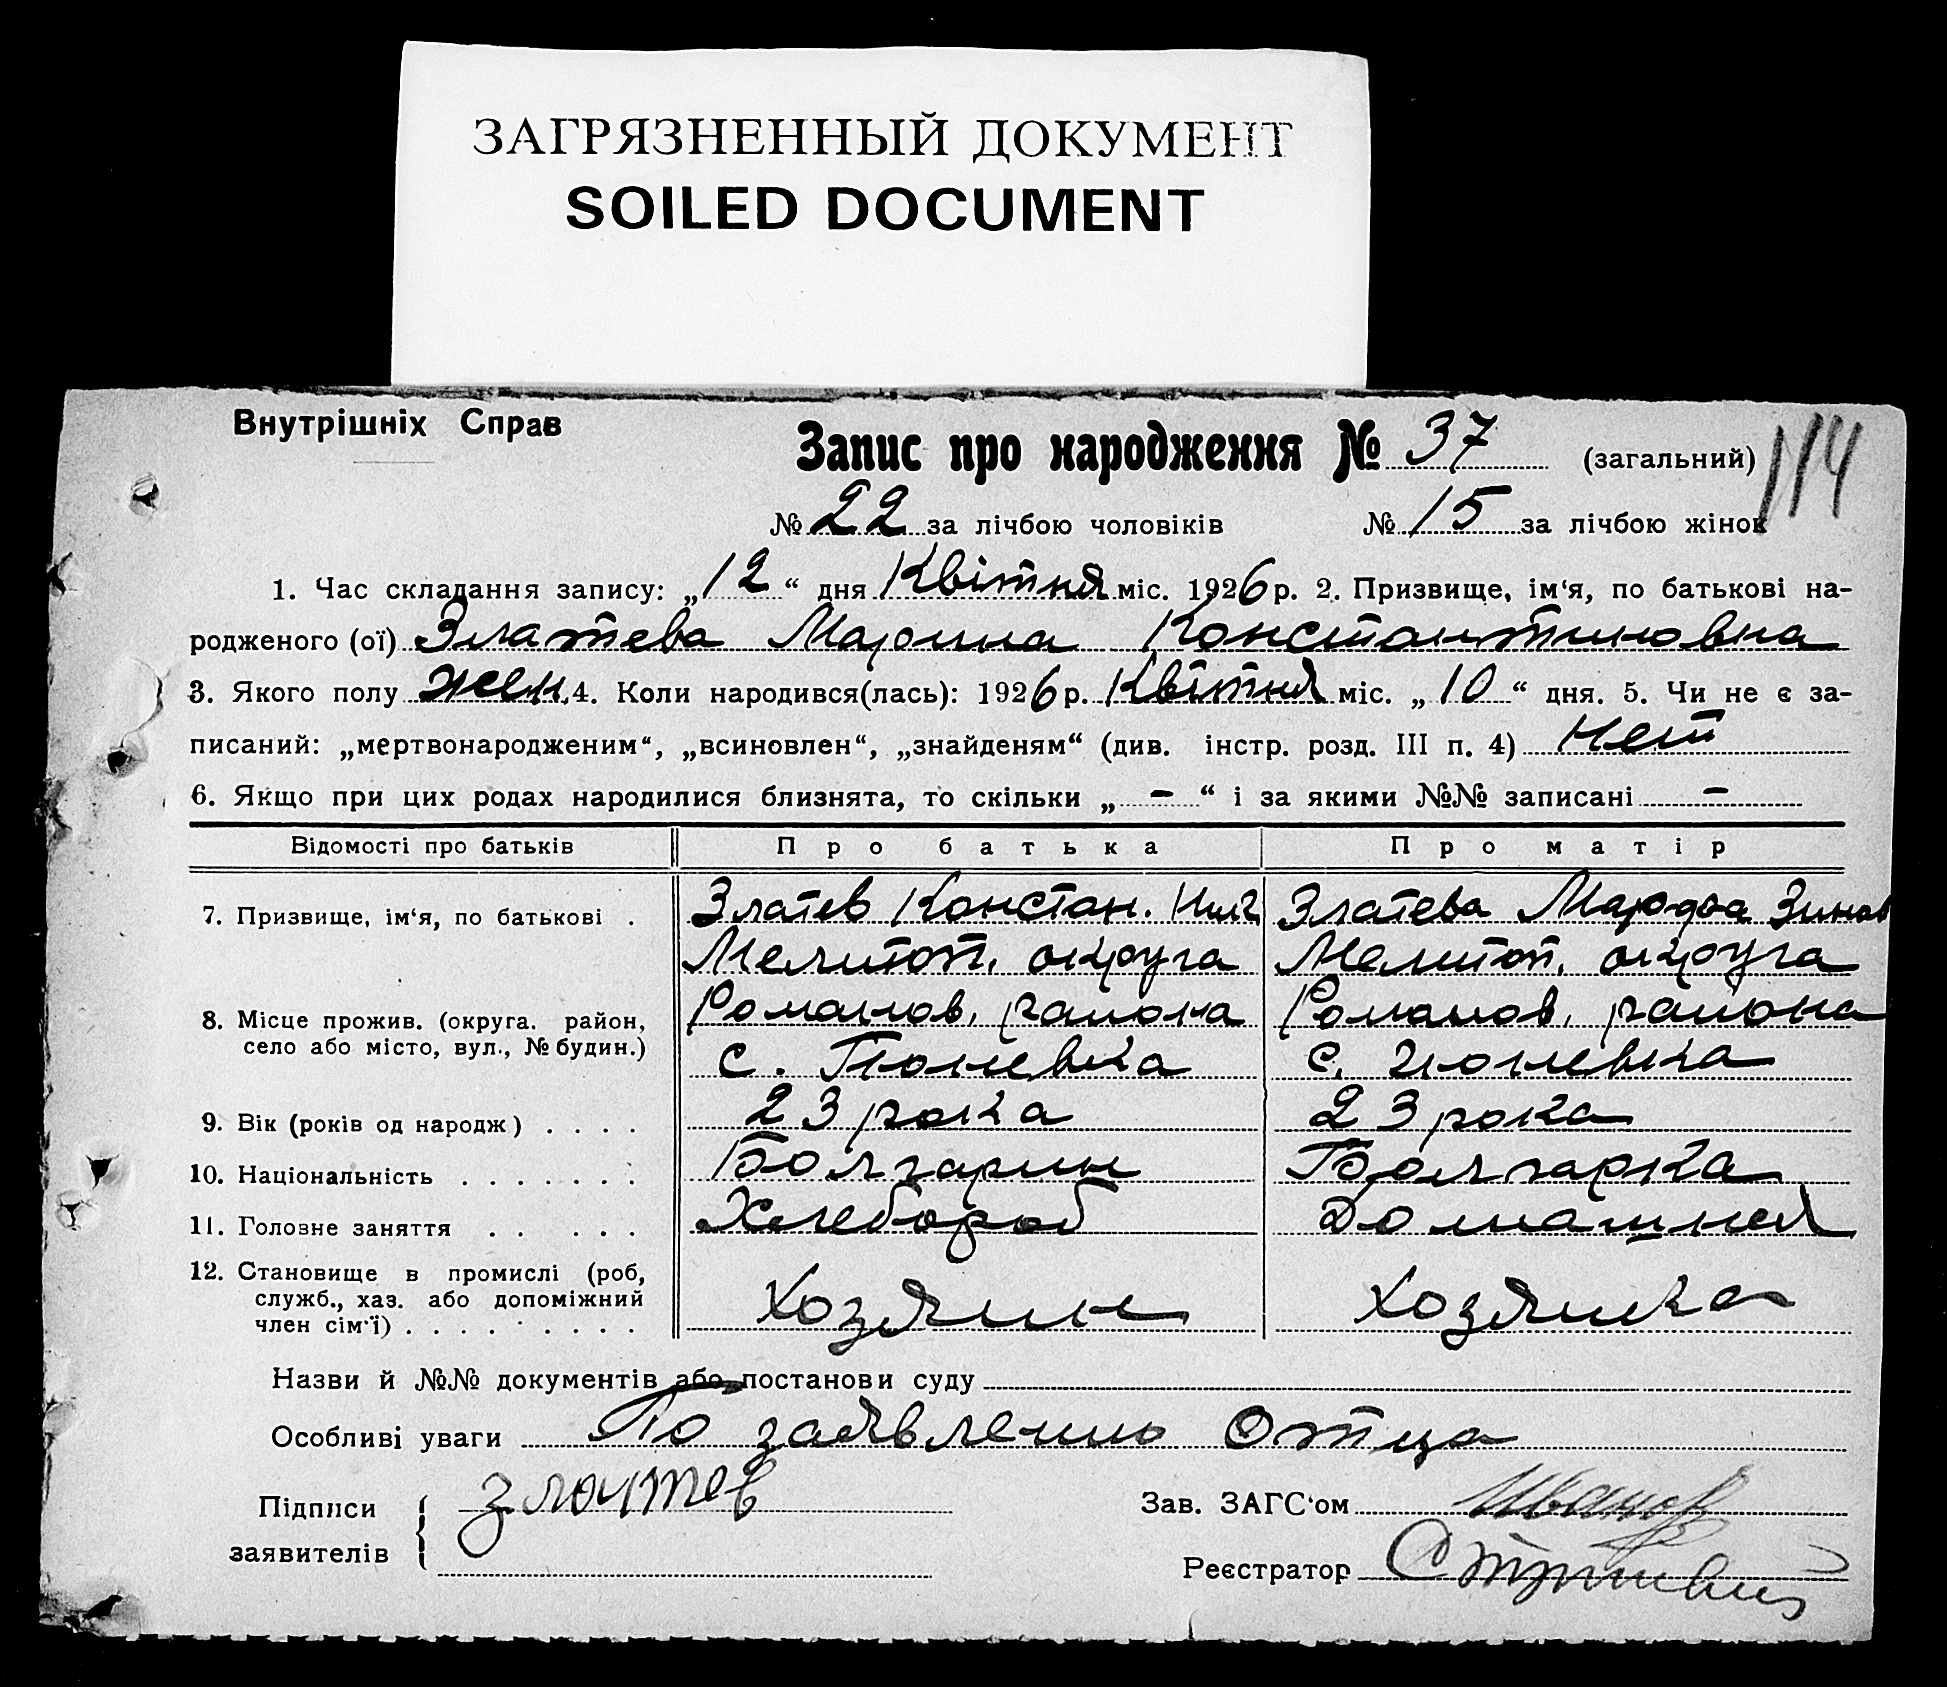 ЗАГРЯЗНЕННЫЙ ДОКУМЕНТ
SOILED DOCUMENT
Внутрішніх Справ
Запис про народження № 37 (загальний) 114
№ 22 за лічбою чоловіків № 15 за лічбою жінок
1. Час складання запису: „12“ дня Квітня міс. 1926 р. 2. Призвище, ім‘я, по батькові на-
родженого (ої) Златева Марина Константиновна
3. Якого полу жен. 4. Коли народився(лась): 1926 р. Квітня міс. „10“ дня. 5. Чи не є за-
писаний: „мертвонародженим“, „всиновлен“, „знайденям“ (див. інстр. розд. III п. 4) Нет
6. Якщо при цих родах народилися близнята, то скільки „ – “ і за якими №№ записані –
Відомості про батьків Про батька Про матір
7. Призвище, ім‘я, по батькові . Златев Констан. Златева Марфа Зинов
Мелитоп. округа Мелитоп. округа
Романов. района Романов. района
8. Місце прожив. (округа. район,
село або місто, вул., № будин.) с. Тюневка
9. Вік (років од народж) . . . . 23 рока 23 рока
10. Національність . . . . . . . Болгарин Болгарка
11. Головне заняття . . . . . Хлебороб Домашняя
12. Становище в промислі (роб,
служб., хаз. або допоміжний
член сім‘ї) . . . . . . . . . Хозяин Хозяйка
Назви й №№ документів або постанови суду
Особливі уваги По заявлению Отца
Підписи златев Зав. ЗАГС‘ом Иванов
заявителів
Реєстратор